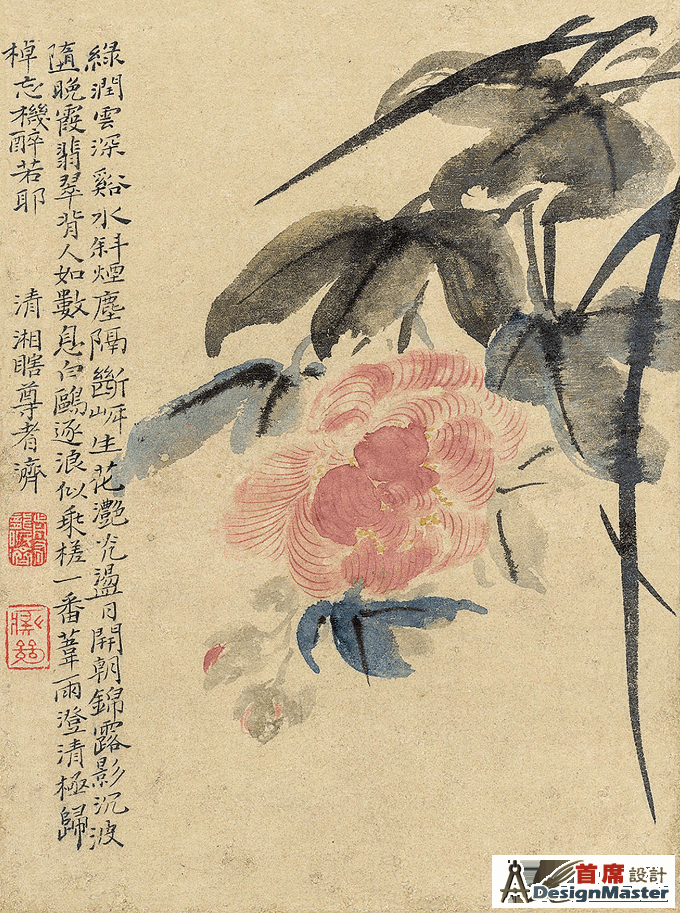 綠潤雲深谿水斜煙塵隔斷岸生花灧光盪日開朝錦露影沉波
隨晚霞翡翠背人如數息白鷗逐浪似乘槎一番葦雨澄清極歸
棹忘機醉若耶
清湘瞎尊者濟
首席設計
DesignMaster